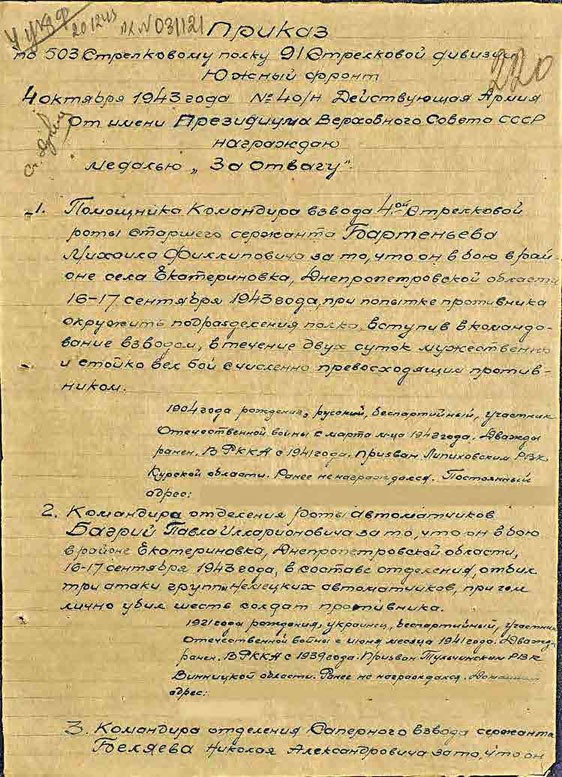 20.12.43 вх № 031121
220
Приказ
по 503 Стрелковому полку 91 Стрелковой дивизии
Южный фронт
4 октября 1943 года № 40/н Действующая Армия
От имени Президиума Верховного Совета СССР
награждаю
медалью „За отвагу".
1. Помощника Командира взвода 4-ой Стрелковой
роты старшего сержанта Бартеньева
Михаила Филлиповича за то, что он в бою в рай-
оне села Екатериновка, Днепропетровской области
16-17 сентября 1943 года, при попытке противника
окружить подразделения полка, вступив в командо-
вание взводом, в течение двух суток мужественно
и стойко вел бой с численно превосходящим против-
ником.
1904 года рождения, русский, беспартийный, участник
Отечественной войны с марта м-ца 1942 года. Дважды
ранен. В РККА с 1941 года. Призван Липиховским РВК
Курской области. Ранее не награждался. Постоянный
адрес:
2. Командира отделения роты автоматчиков
Багрий Павла Илларионовича за то, что он в бою
в районе Екатериновка, Днепропетровской области,
16-17 сентября 1943 года, в составе отделения, отбил
три атаки группы немецких автоматчиков, при чем
лично убил шесть солдат противника.
1921 года рождения, украинец, беспартийный, участник
Отечественной войны с июня месяца 1941 года. Дважды
ранен. В РККА с 1939 года. Призван Тульчинским РВК
Винницкой области. Ранее не награждался. Домашний
адрес:
3. Командира отделения Саперного взвода сержанта
Беляева Николая Александровича за то, что он